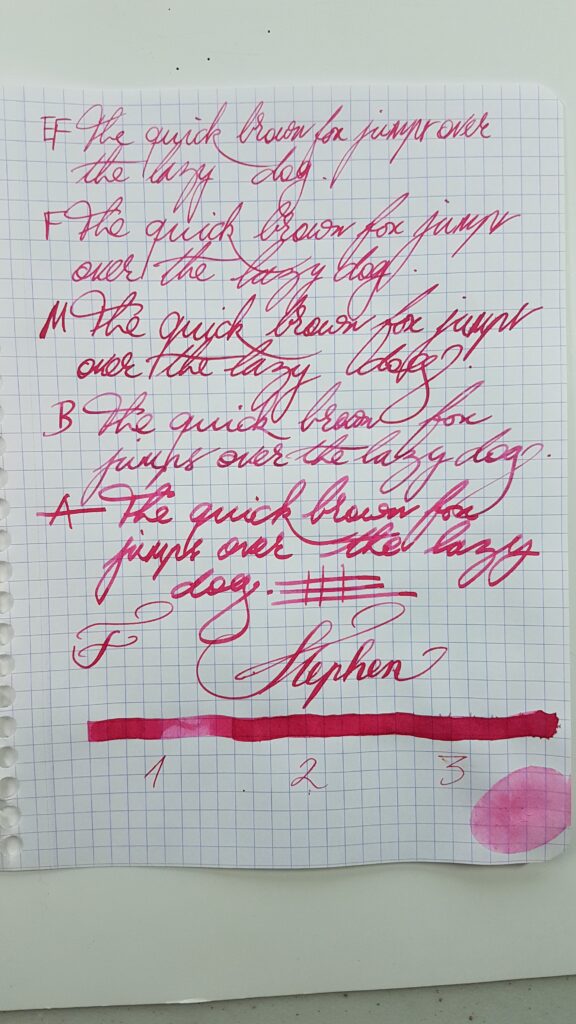 EF The quick brown fox jumps over
the lazy dog.
F The quick brown fox jumps
over the lazy dog.
M The quick brown fox jumps
over the lazy dog.
B The quick brown fox
jumps over the lazy dog.
A The quick brown fox
jumps over the lazy
dog.
F Stephen
1 2 3